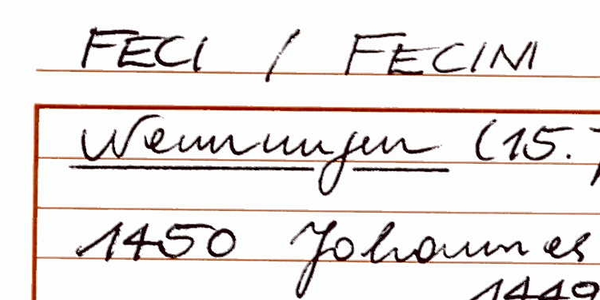 FECI / FECINI
Wenningen (15.
1450 Johannes
1449